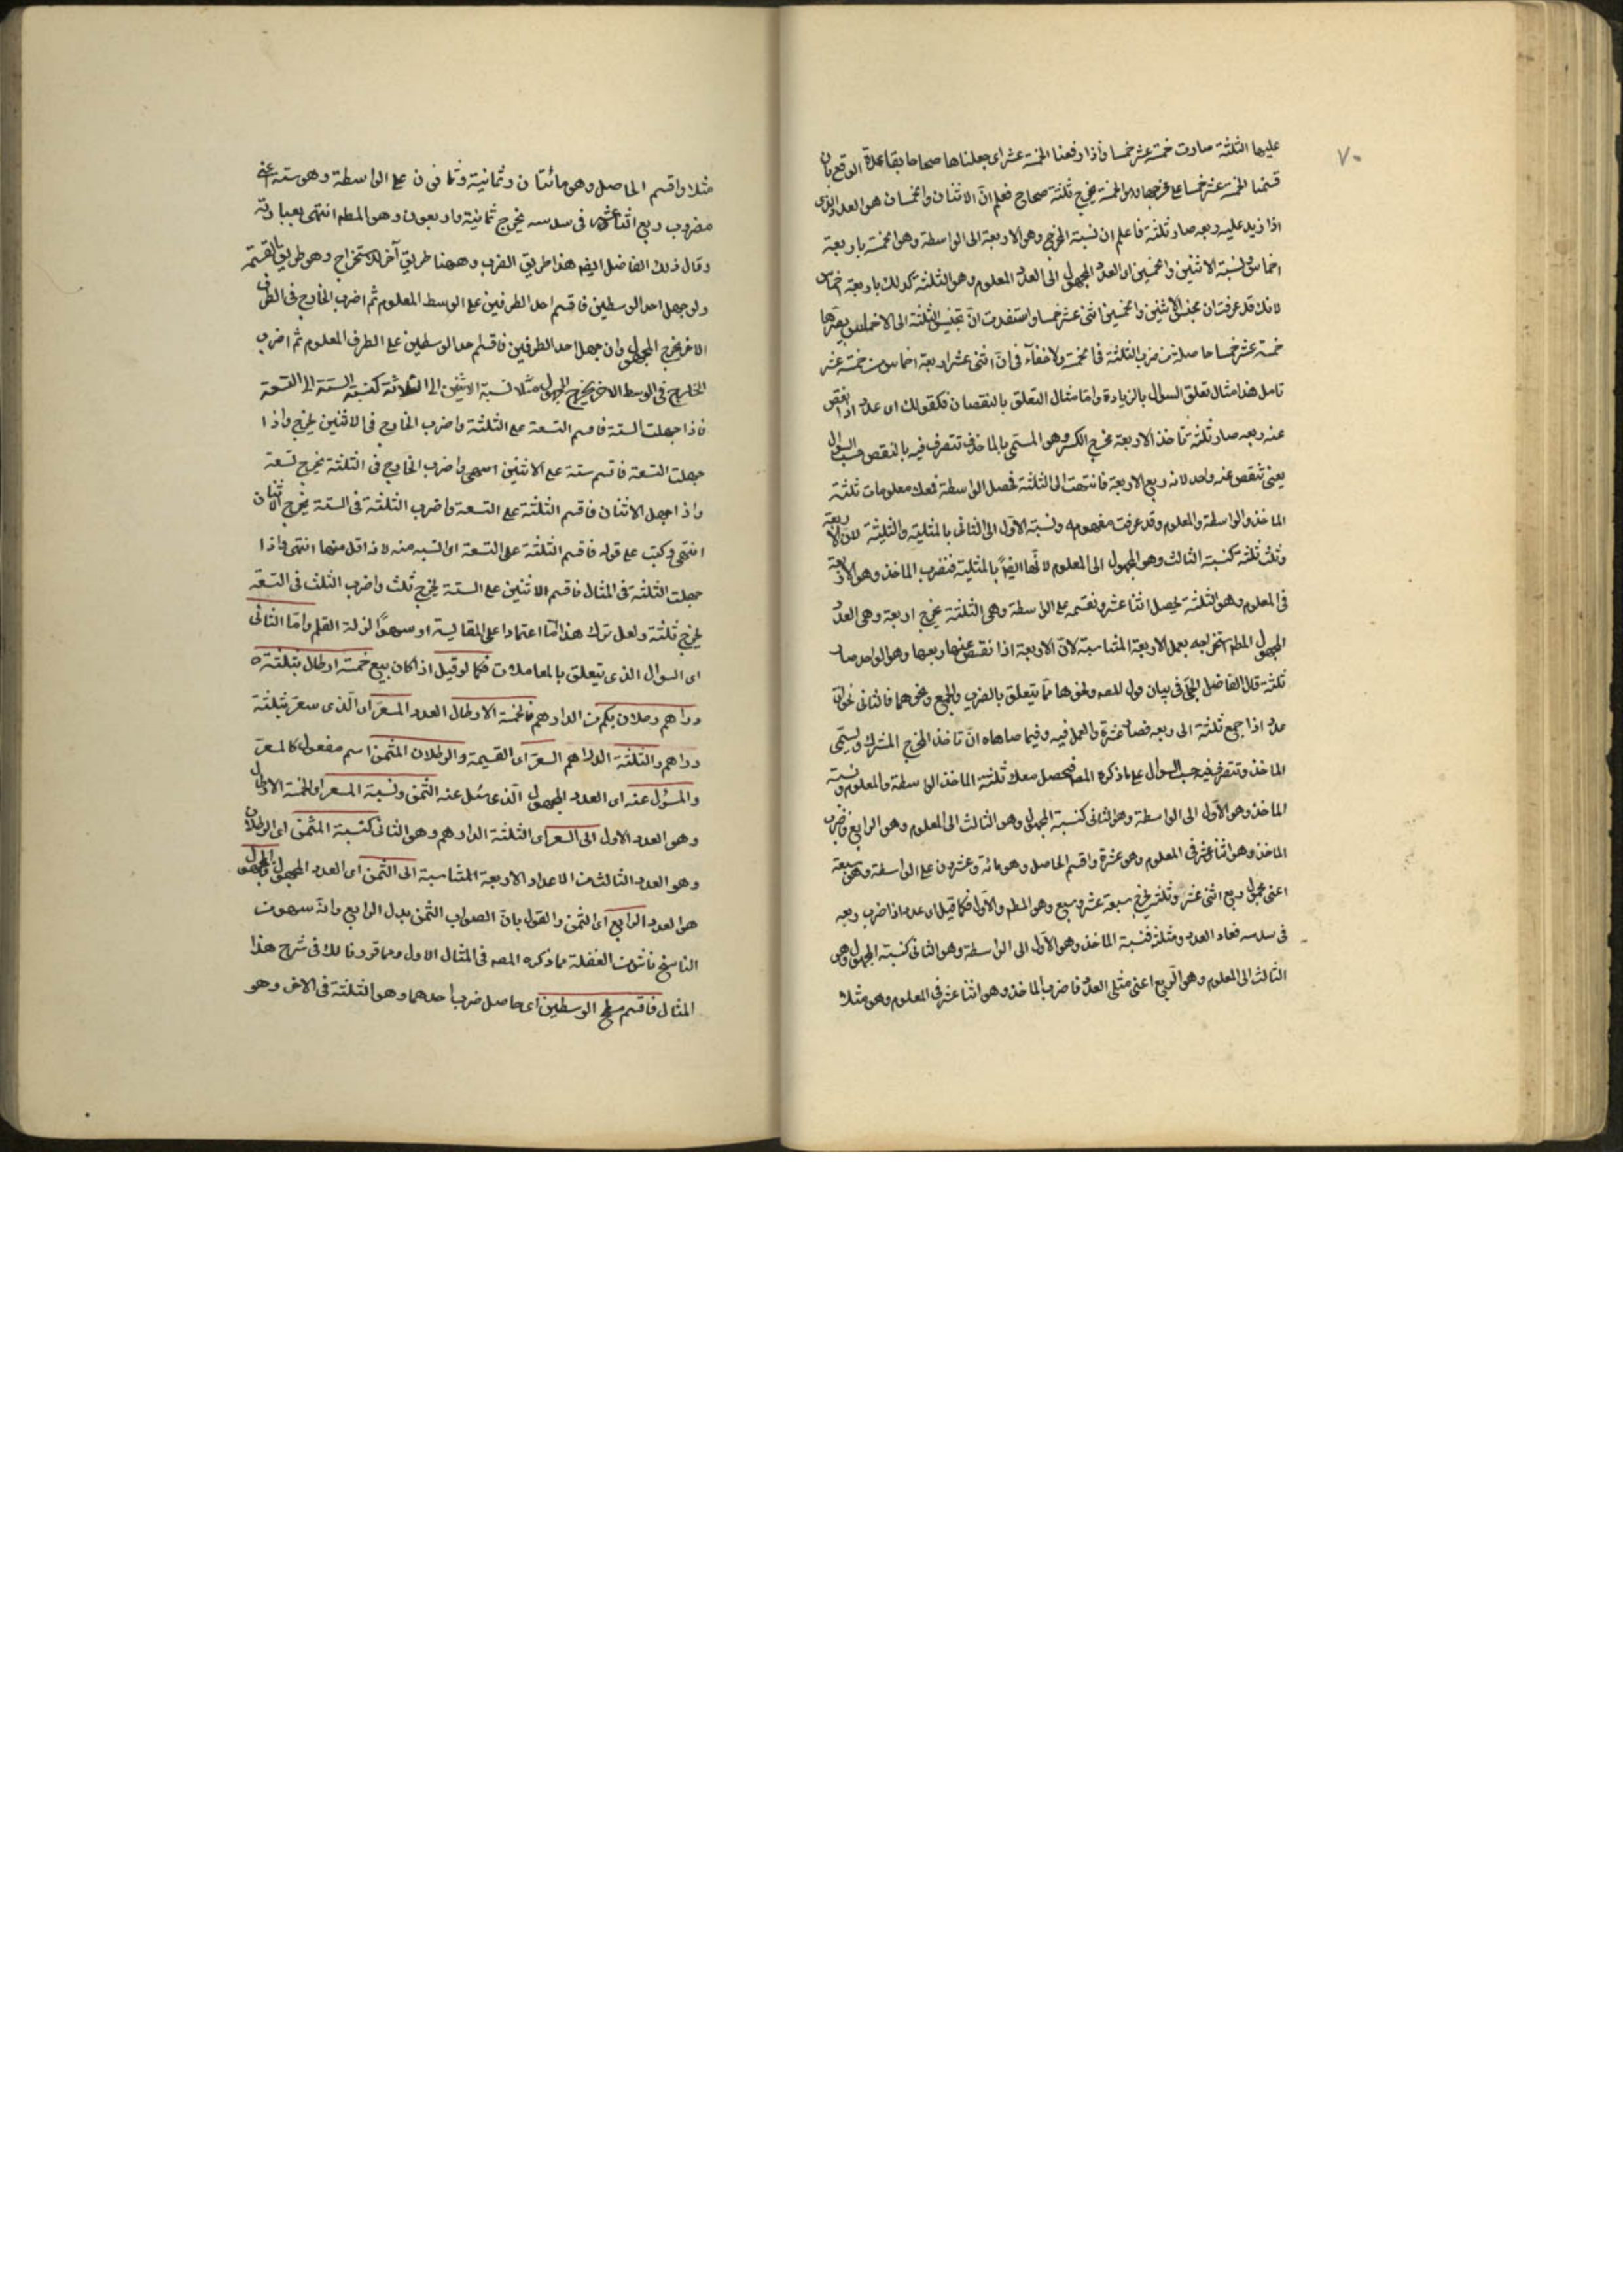 ٧٠
عليها الثلثة صارت خمسة عشر خمسا واذا رفعنا الخمسة عشر اى جعلناها صحاحا بقاعدة الرفع بان
قسمنا الخمسة عشر خمسا على مخرجها وهو الخمسة يخرج ثلثة صحاح فعلم انّ الاثنان والخمسان هو العدد الذى
اذا زيد عليه ربعه صار ثلثة فاعلم ان نسبة المخرج وهو الاربعة الى الواسطة وهو الخمسة باربعة
اخماس ونسبة الاثنين والخمسين اى العدد المجهول الى العدد المعلوم وهو الثلثة كذلك باربعة اخماس
لانك قد عرفت ان مجنس الاثنين والخمسين اثنى عشر خمسا واستفدت انّ تجنيس الثلثة الى الاخماس يصيرها
خمسة عشر خمسا حاصلة من ضرب الثلثة فى الخمسة ولا خفآء فى انّ اثنى عشر اربعة اخماس من خمسة عشر
تامل هذا مثال تعلق السؤال بالزيادة وامّا مثال التعلق بالنقصان فكقولك اى عدد اذا نقص
عنه ربعه صار ثلثة تأخذ الاربعة مخرج الكسر وهو المسمى بالماخذ فتتصرف فيه بالنقص حسب السؤال
يعنى تنقص عنه واحد لانه ربع الاربعة فانتهت الى الثلثة فحصل الواسطة فمعك معلومات ثلثة
الماخذ والواسطة والمعلوم وقد عرفت مفهومه ونسبة الاول الى الثانى بالمثلية والثلثية لانّ الاربعة
وثلث ثلثة كنسبة الثالث وهو المجهول الى المعلوم لانّها ايضًا بالمثلية فنضرب الماخذ وهو الاربعة
فى المعلوم وهو الثلثة يحصل اثنا عشر ونقسمه على الواسطة وهى الثلثة يخرج اربعة وهى العدد
المجهول المطم استخراجه بعمل الاربعة المتناسبة لانّ الاربعة اذا نقص عنها ربعها وهو الواحد صار
ثلثة قال الفاضل فى بيان قول المصه ونحوها ممّا يتعلق بالضرب والجمع ونحوهما فالثانى نحو اىّ
عدد اذا جمع ثلثة الى ربعه فصار عشرة والعمل فيه وفيما ضاهاه انّ تاخذ المخرج المشترك ويسمى
الماخذ وتتصرف فيه حسب السؤال على ما ذكره المصه فيحصل معك ثلثة الماخذ الواسطة والمعلوم ونسبة
الماخذ وهو الاول الى الواسطة وهو الثانى كنسبة المجهول وهو الثالث الى المعلوم وهو الرابع فاضرب
الماخذ وهو اثنا عشر فى المعلوم وهو عشرة واقسم الحاصل وهو مائة وعشرون على الواسطة وهى سبعة
اعنى مجموع ربع اثنى عشر وثلثه يخرج سبعة عشر وسبع وهو المطم والاول فكما قيل اى عدد اذا ضرب ربعه
فى سدسه فعاد العدد ومثله فنسبة الماخذ وهو الاول الى الواسطة وهو الثانى كنسبة المجهول وهو
الثالث الى المعلوم وهو الرابع اعنى مثلى العدد فاضرب الماخذ وهو اثنا عشر فى المعلوم وهو مثلا
مثلا واقسم الحاصل وهو مائتان وثمانية وثمانون على الواسطة وهو ستة اعنى
مضروب ربع اثنا عشر فى سدسه يخرج ثمانية واربعون وهو المطم انتهى بعبارته
وقال ذلك الفاضل ايضه هذا طريق الضرب وههنا طريق آخر للاستخراج وهو طريق القسمة
ولو جهل احد الوسطين فاقسم احد الطرفين على الوسط المعلوم ثم اضرب الخارج فى الطرف
الاخر يخرج المجهول وان جهل احد الطرفين فاقسم احد الوسطين على الطرف المعلوم ثم اضرب
الخارج فى الوسط الاخر يخرج المجهول مثلا نسبة الاثنين الى الثلاثة كنسبة الستة الى التسعة
فاذا جهلت الستة فاقسم التسعة على الثلثة واضرب الخارج فى الاثنين يخرج واذا
جهلت التسعة فاقسم ستة على الاثنين واضرب الخارج فى الثلثة يخرج تسعة
واذا جهل الاثنان فاقسم الثلثة على التسعة واضرب الثلثة فى الستة يخرج الاثنان
انتهى وكتب على قوله فاقسم الثلثة على التسعة اى انسبه منه لانه اقل منها انتهى واذا
جهلت الثلثة فى المثال فاقسم الاثنين على الستة يخرج ثلث واضرب الثلث فى التسعة
يخرج ثلثة ولعل ترك هذا امّا اعتمادا على المقايسة او سهوًا لزلة القلم وامّا الثانى
اى السؤال الذى يتعلق بالمعاملات فكما لو قيل اذا كان بيع خمسة ارطال بثلثة
دراهم رطلان بكم من الدراهم فالخمسة الارطال العدد المسعّر اى الّذى سعّر بثلثة
دراهم والثلثة الدراهم السعر اى القيمة والرطلان المثمن اسم مفعول كالمسعّر
والمسؤل عنه اى العدد المجهول الّذى سئل عنه الثمن ونسبة المسعر اى الخمسة الارطال
وهو العدد الاول الى السعر اى الثلثة الدراهم وهو الثانى كنسبة المثمن اى الرطلان
وهو العدد الثالث من الاعداد الاربعة المتناسبة الى الثمن اى العدد المجهول فالمجهول
هو العدد الرابع اى الثمن والقول بانّ الصواب الثمن بدل الرابع وانّه سهو من
الناسخ ناش من الغفلة مما ذكره المصه فى المثال الاول ومما قررنا لك فى شرح هذا
المثال فاقسم مسطح الوسطين اى حاصل ضرب احدهما وهو الثلثة فى الاخر وهو